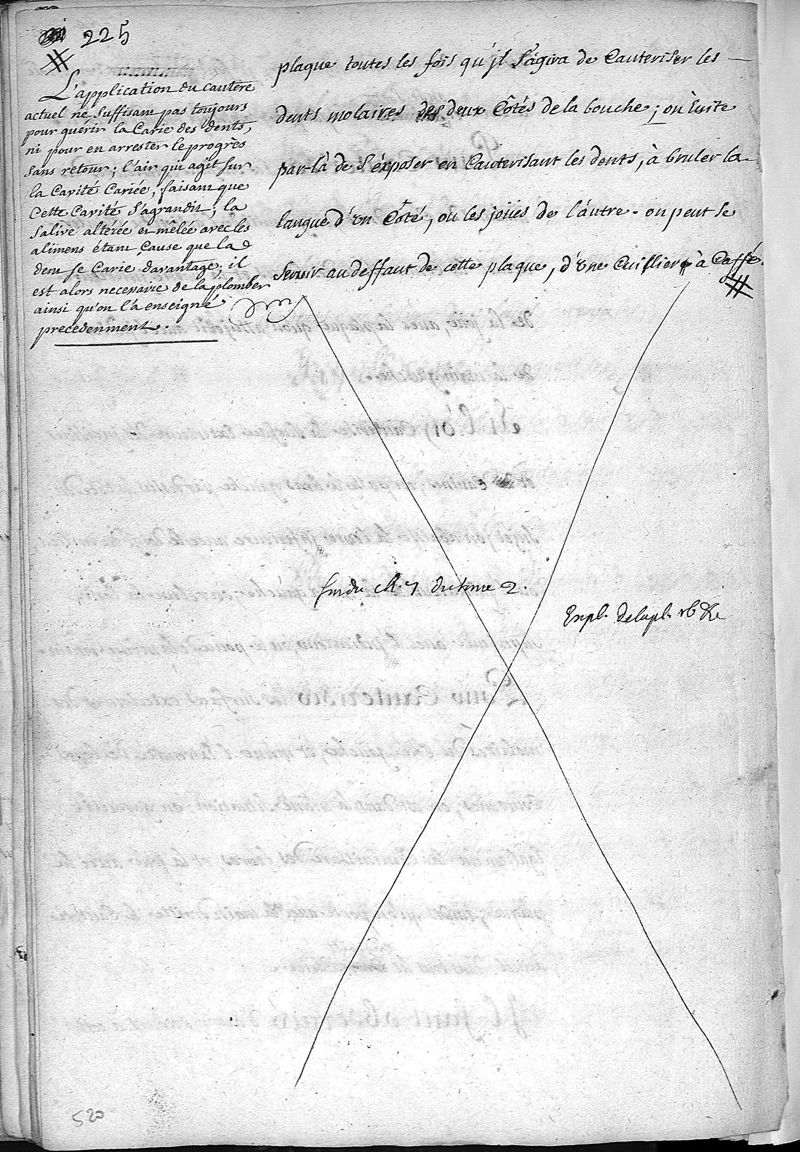 225
#
L'application du cautère
actuel ne suffisant pas toujours
pour guérir la Carie des dents,
ni pour en arrester le progrès
sans retour; l'air qui agit sur
la Cavité Cariée, faisant que
Cette Cavité s'agrandit; la
salive alterée et melée avec les
alimens étant Cause que la
dent se Carie davantage, il
est alors necessaire de la plomber
ainsi qu'on l'a enseigné
precedenment.
plaque toutes les fois qu'jl s'agira de Cauteriser les
dents molaires des deux Côtés de la bouche; on èvite
par-là de s'éxposer en Cauterisant les dents, à bruler la
langue d'un Côté, ou les joües de l'autre. on peut se
servir au deffaut de cette plaque, d'une Cuillier à Caffé.
#
fin du ch. 7 du tome 2.
Expl. de la pl. 16 &c
520